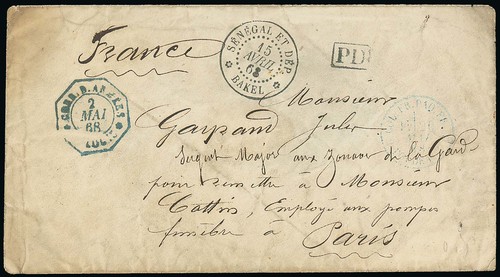 France
SÉNÉGAL ET DÉP.
15
AVRIL
68
BAKEL
PD
CORR. D. ARMÉES
2
MAI
68
Monsieur
Gaspard Jules
Sergent Major aux Zouaves de la Garde
pour remettre à Monsieur
Cottin, Employé aux pompes
funèbre à
Paris